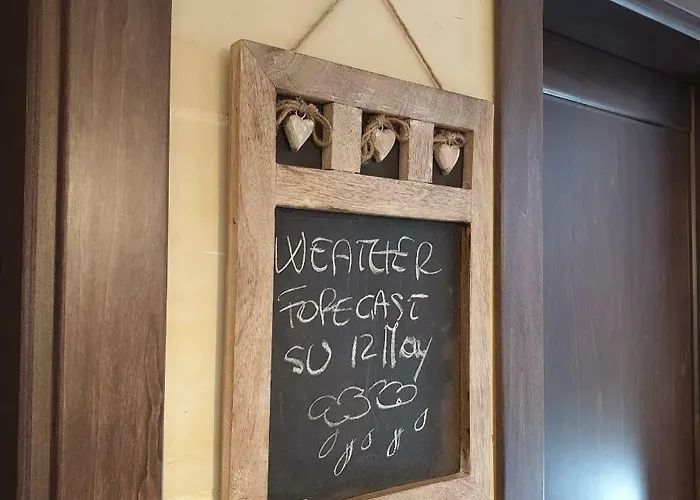 WEATHER
FORECAST
SU 12 May